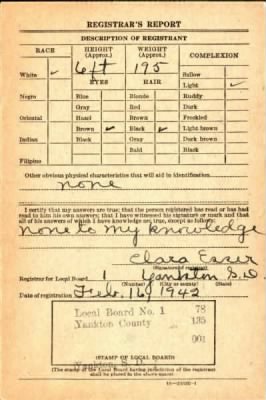 REGISTRAR'S REPORT
DESCRIPTION OF REGISTRANT
RACE HEIGHT (Approx.) WEIGHT (Approx.) COMPLEXION
6 ft 195
White ✓ Sallow
EYES HAIR Light ✓
Negro Blue Blonde Ruddy
Gray Red Dark
Oriental Hazel Brown Freckled
Brown ✓ Black ✓ Light brown
Indian Black Gray Dark brown
Bald Black
Filipino
Other obvious physical characteristics that will aid in identification
none
I certify that my answers are true; that the person registered has read or has had
read to him his own answers; that I have witnessed his signature or mark and that
all of his answers of which I have knowledge are true, except as follows:
none to my knowledge
Clara Esser
(Signature of registrar)
Registrar for Local Board 1 Yankton S.D
(Number) (City or county) (State)
Date of registration Feb. 16, 1942
Local Board No. 1 78
Yankton County 135
001
Yankton S. D.
(STAMP OF LOCAL BOARD)
(The stamp of the Local Board having jurisdiction of the registrant
shall be placed in the above space)